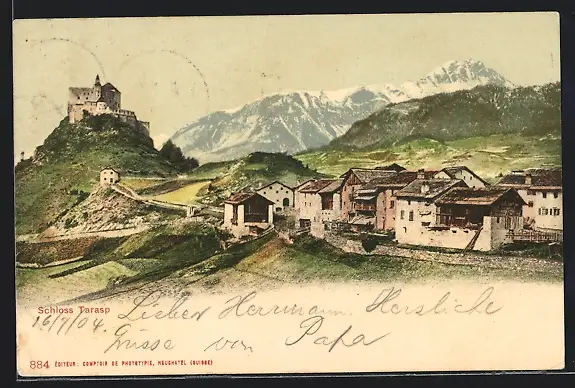 Schloss Tarasp
16/7/04. Lieber Herrmann. Herzliche
Grüsse von Papa
884 ÉDITEUR: COMPTOIR DE PHOTOTYPIE, NEUCHATEL (SUISSE)